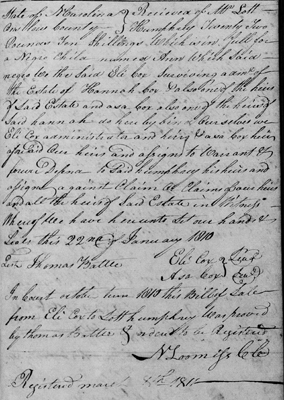 State of N Carolina } Received of Mr Lott
Onslow County } Humphrey Twenty two
Pounds Ten Shillings Which is in full for
a Negro Child named Ann Which Said
negro We the Said Eli Cox Surviving adm of
the Estate of Hannah Cox & also one of the heirs
of Said Estate and asa Cox also one of the heirs of
Said hannah do hereby bind Ourselves we
Eli Cox administrator and heir & asa Cox heir
aforesaid Our heirs and assigns to Warrant &
forever Defend to Said humphrey his heirs and
assigns against Claim or Claims of our heirs
and all the heirs of Said Estate in Witness
Whereof We have hereunto Set our hand &
Seals this 22nd of January 1810
Test Thomas Battle
Eli Cox Seal
Asa Cox Seal
In Court octobr term 1810 this Bill of Sale
from Eli Cox to Lott humphrey Was proved
by thomas Battle & ordered to be Registered
N Loomiss Clk
Registered march 1811